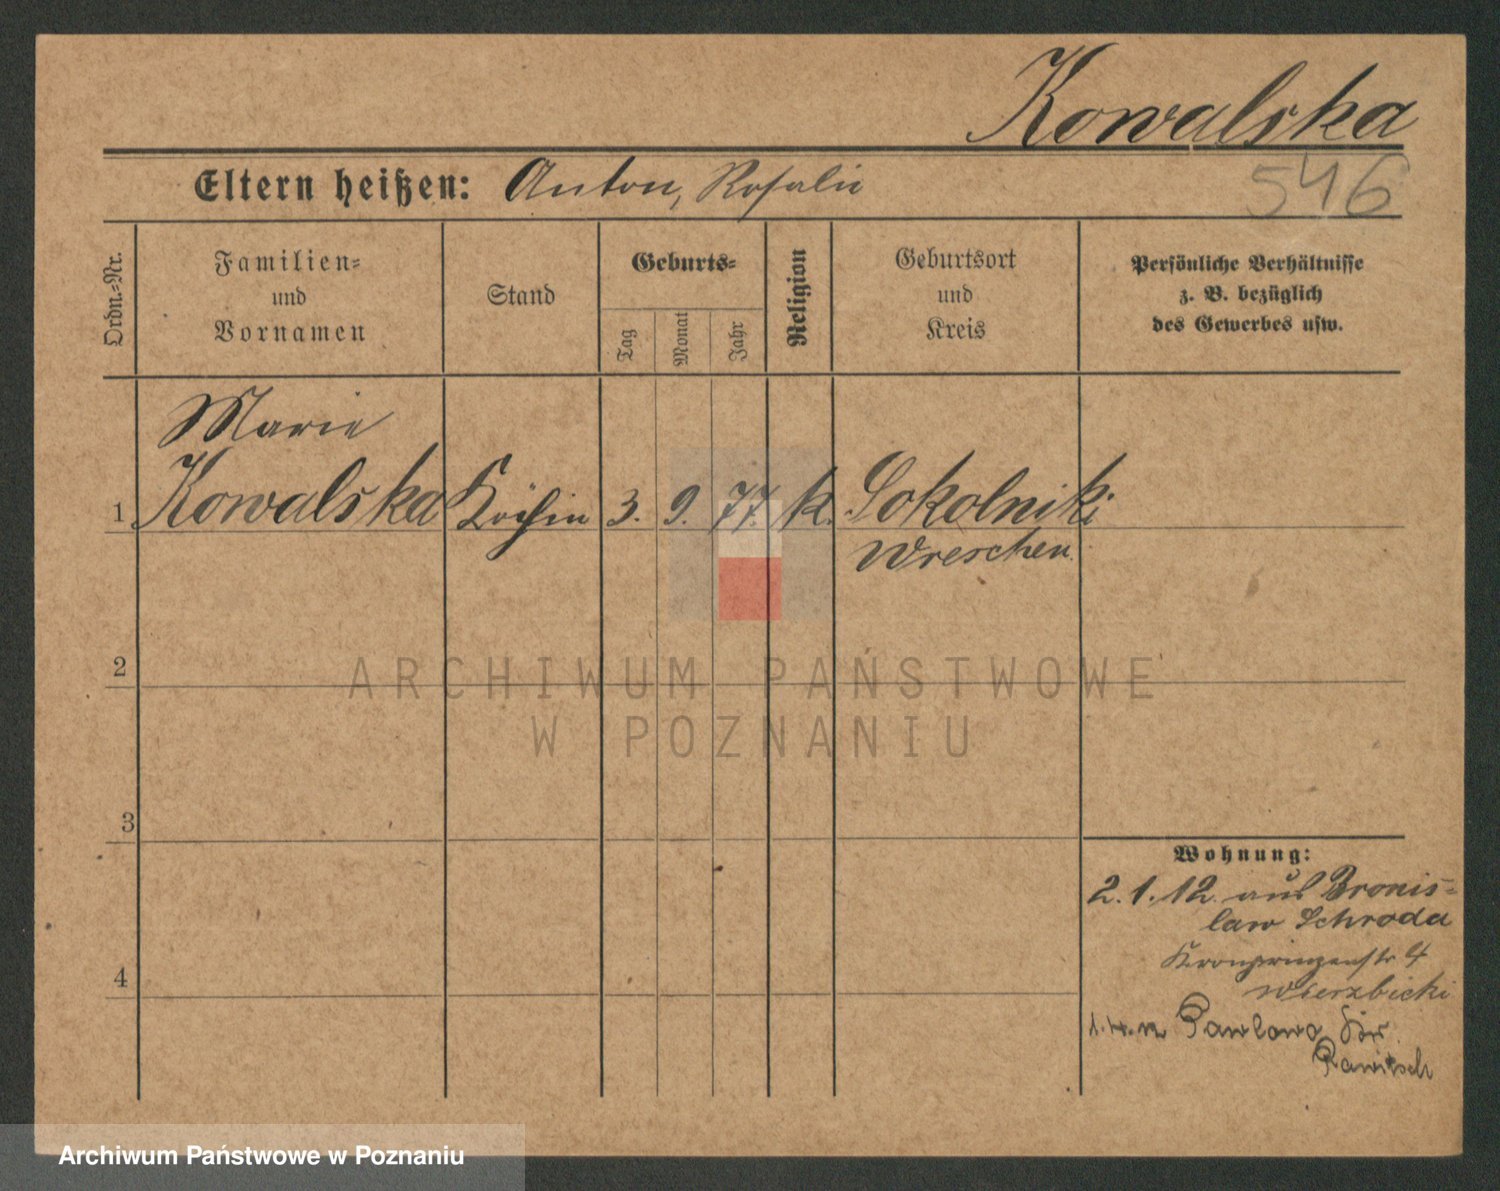 Kowalska
546
Eltern heißen: Anton, Rosalie
Ordn.-Nr.
Familien-
und
Vornamen
Stand
Geburts-
Tag
Monat
Jahr
Religion
Geburtsort
und
Kreis
Persönliche Verhältnisse
z. B. bezüglich
des Gewerbes usw.
Marie
1 Kowalska Köchin 3. 9. 77. k. Sokolniki
Wreschen.
2
3
4
Wohnung:
2. 1. 12. aus Bronis-
law Schroda
Kronprinzenstr 4
Wierzbicki
Pawlowo
Rawitsch
ARCHIWUM PAŃSTWOWE
W POZNANIU
Archiwum Państwowe w Poznaniu